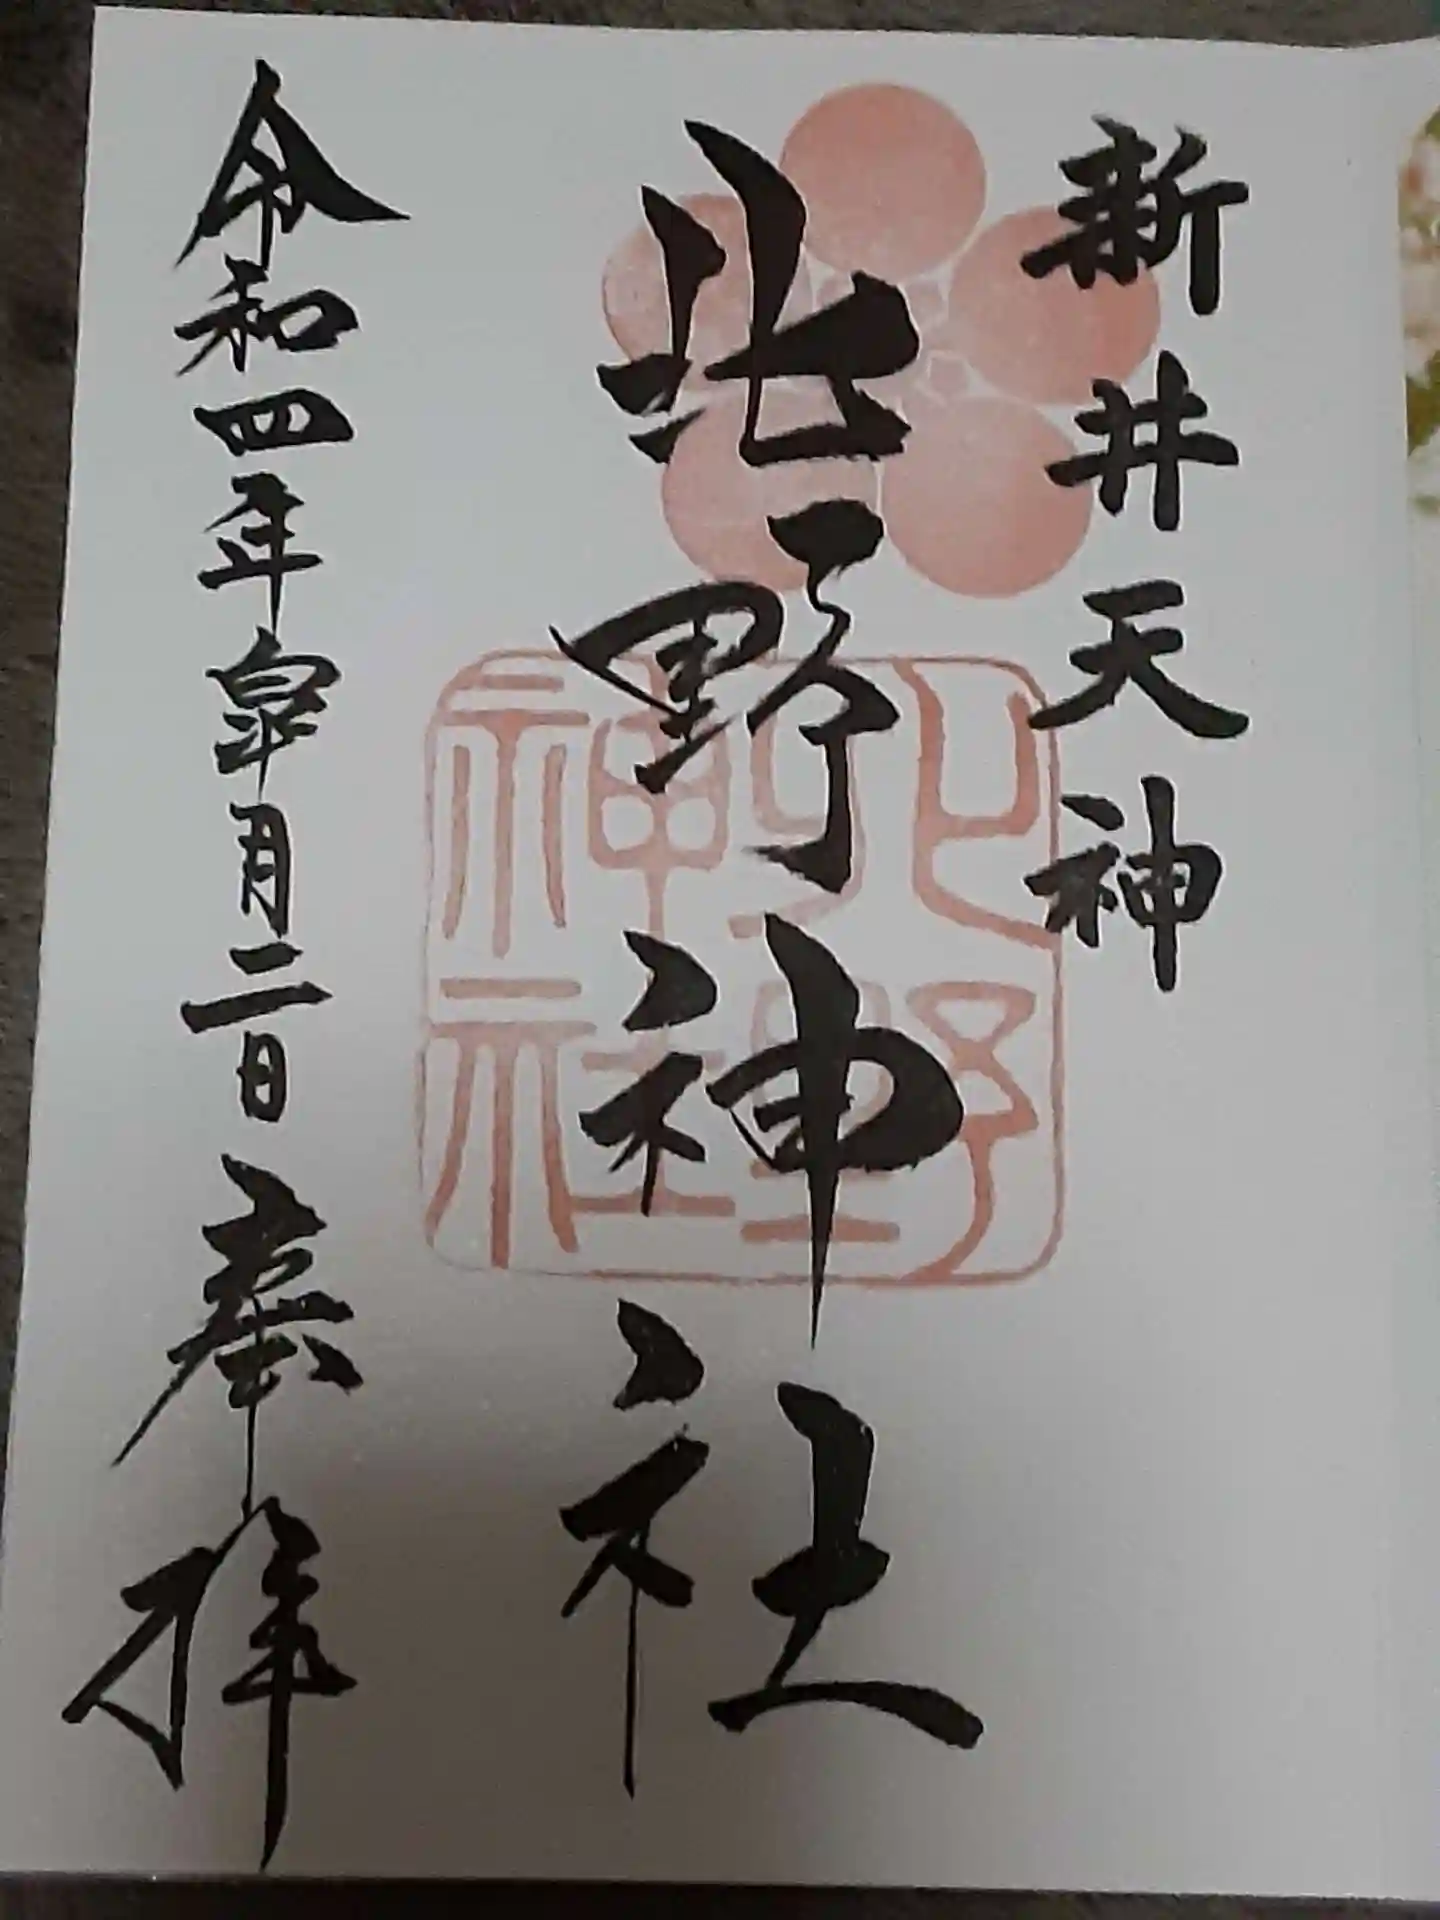 新井天神
北野神社
令和四年皐月二日奉拝
北野神社